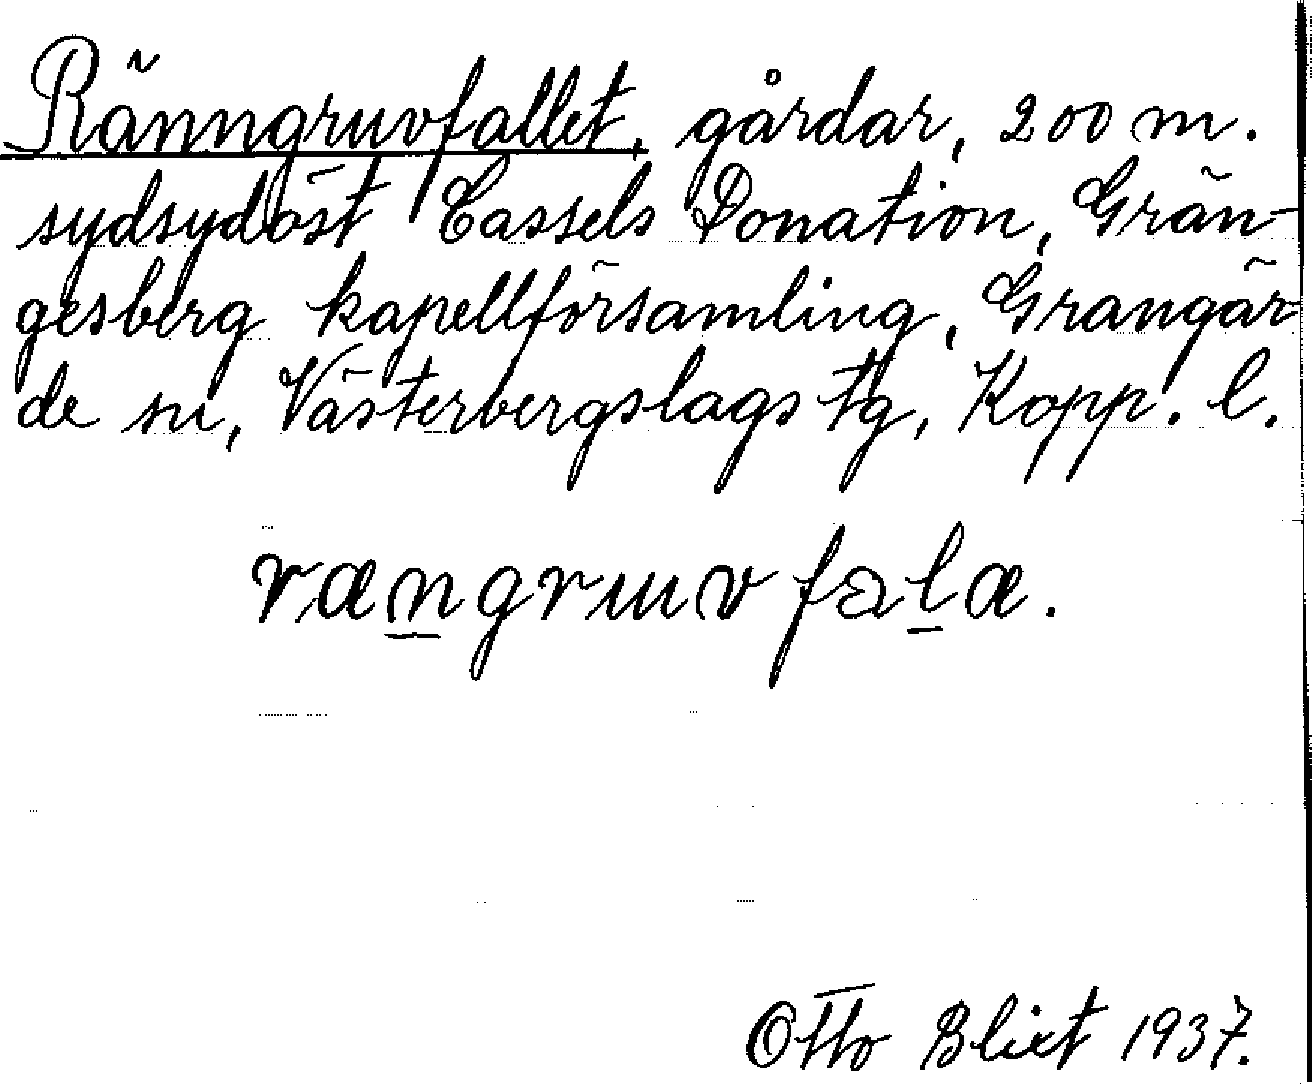 Ränngruvfallet, gårdar, 200 m.
sydsydöst Cassels Donation, Grän-
gesberg kapellförsamling, Grangär-
de sn, Västerbergslags tg, Kopp. l.
rængruvfalæ.
Otto Blixt 1937.